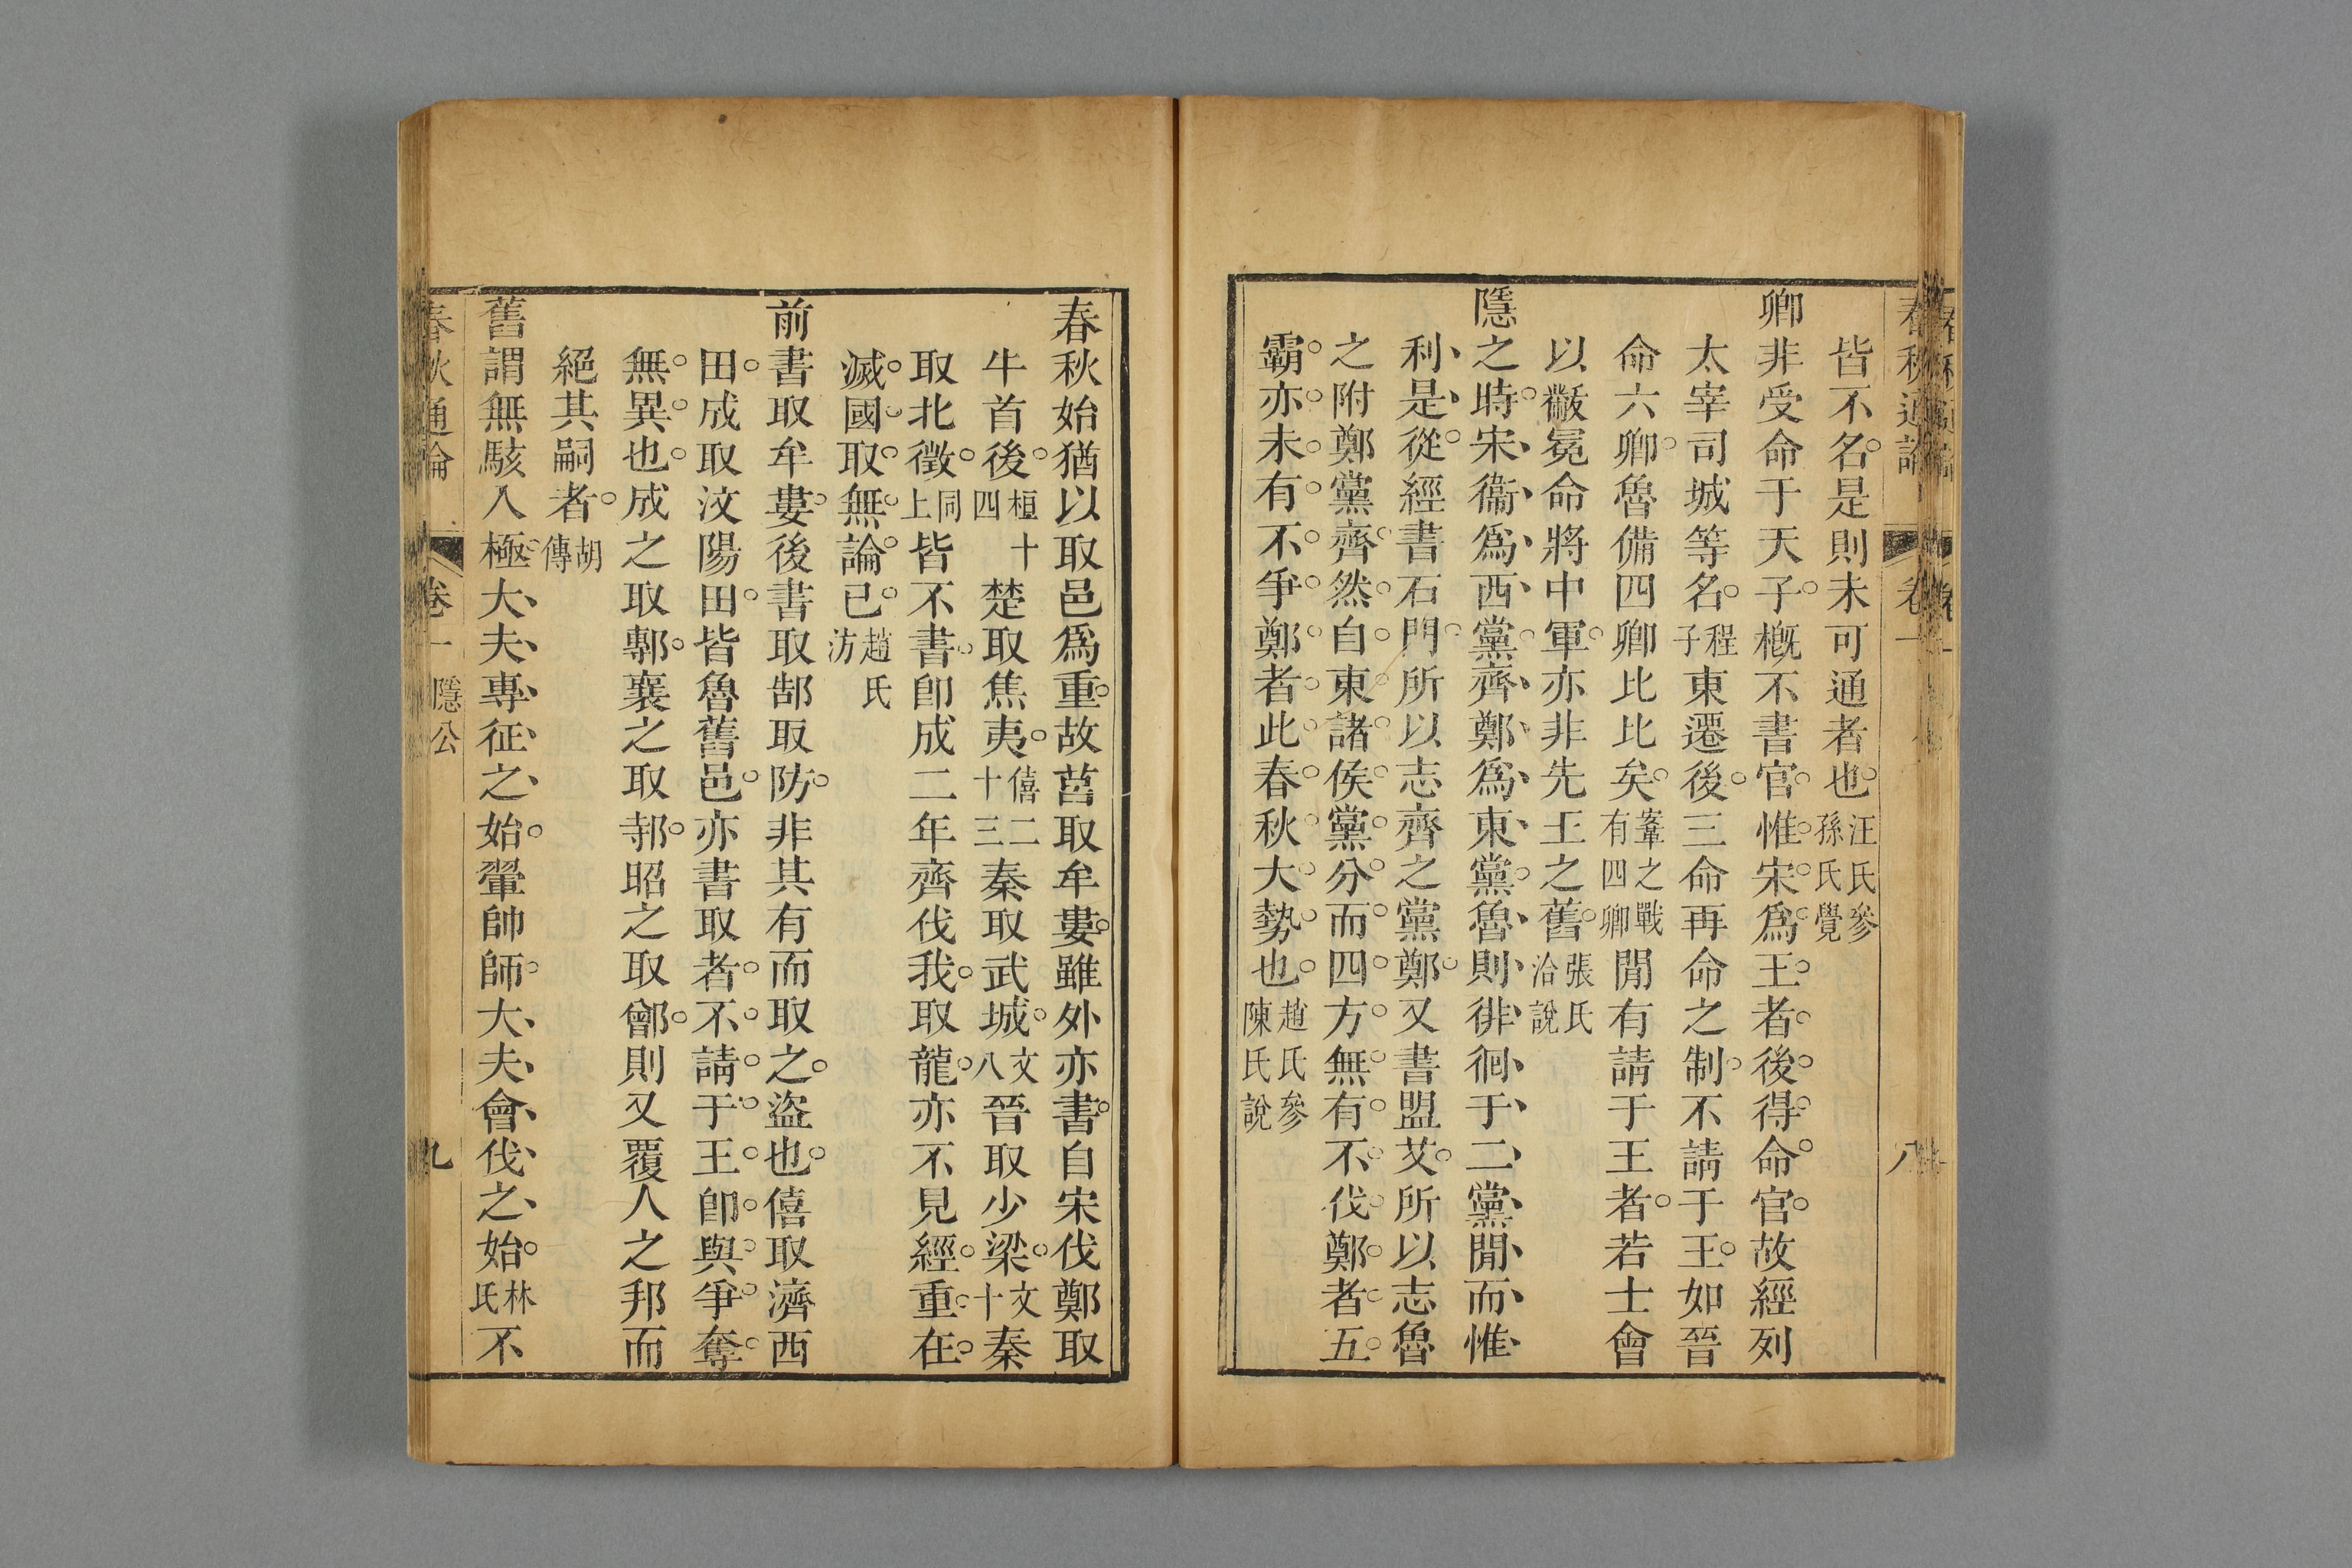 春秋通論 卷一 八
皆不名是則未可通者也汪氏參孫氏覺
卿非受命于天子槪不書官惟宋爲王者後得命官故經列
太宰司城等名程子東遷後三命再命之制不請于王如晉
命六卿魯備四卿比比矣鞌之戰有四卿閒有請于王者若士會
以黻冕命將中軍亦非先王之舊張氏洽說
隱之時宋衞爲西黨齊鄭爲東黨魯則徘徊于二黨閒而惟
利是從經書石門所以志齊之黨鄭又書盟艾所以志魯
之附鄭黨齊然自東諸侯黨分而四方無有不伐鄭者五
霸亦未有不爭鄭者此春秋大勢也趙氏參陳氏說
春秋始猶以取邑爲重故莒取牟婁雖外亦書自宋伐鄭取
牛首後桓十四楚取焦夷僖二十三秦取武城文八晉取少梁文十秦
取北徵同上皆不書卽成二年齊伐我取龍亦不見經重在
滅國取無論已趙氏汸
前書取牟婁後書取郜取防非其有而取之盜也僖取濟西
田成取汶陽田皆魯舊邑亦書取者不請于王卽與爭奪
無異也成之取鄟襄之取邿昭之取鄫則又覆人之邦而
絕其嗣者胡傳
舊謂無駭入極大夫專征之始翬帥師大夫會伐之始林氏不
春秋通論 卷一 隱公 九